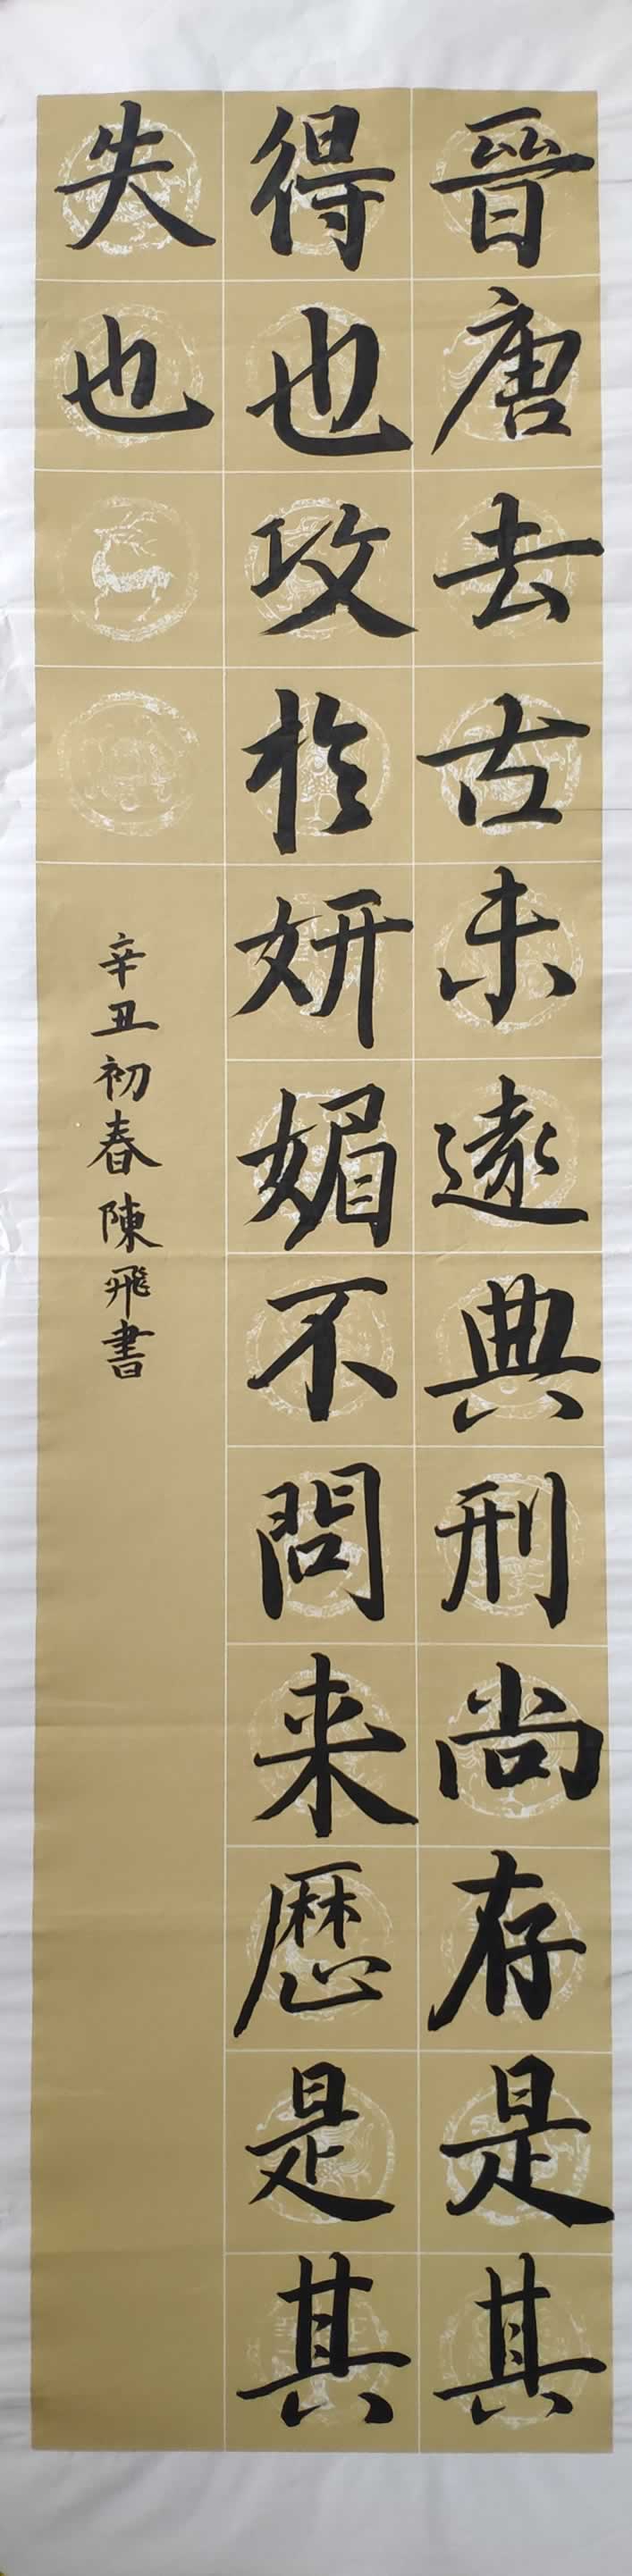 晉唐去古未遠典刑尚存是其
得也攻於妍媚不問来歷是其
失也
辛丑初春陳飛書